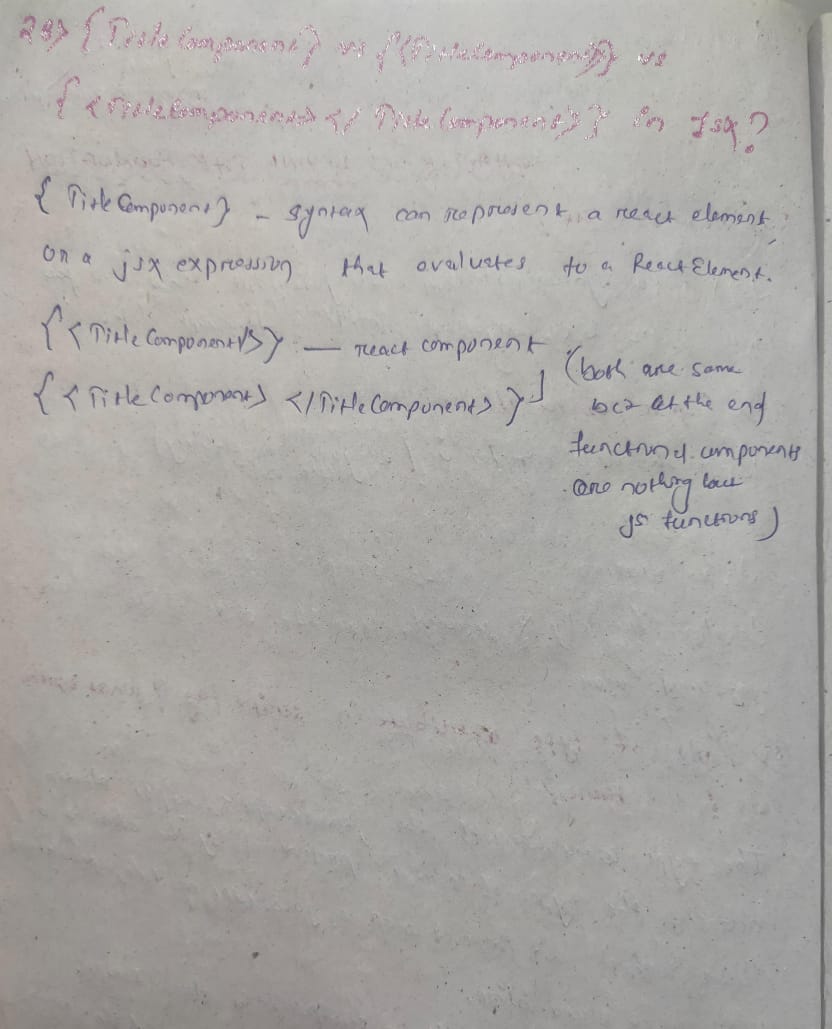 28) {TitleComponent} vs {<TitleComponent/>} vs
{<TitleComponent></TitleComponent>} in JSX?
{TitleComponent} - syntax can represent a react element
or a jsx expression that evaluates to a React Element.
{<TitleComponent/>} — react component
{<TitleComponent> </TitleComponent>}
(both are same
bcz at the end
functional components
are nothing but
js functions)